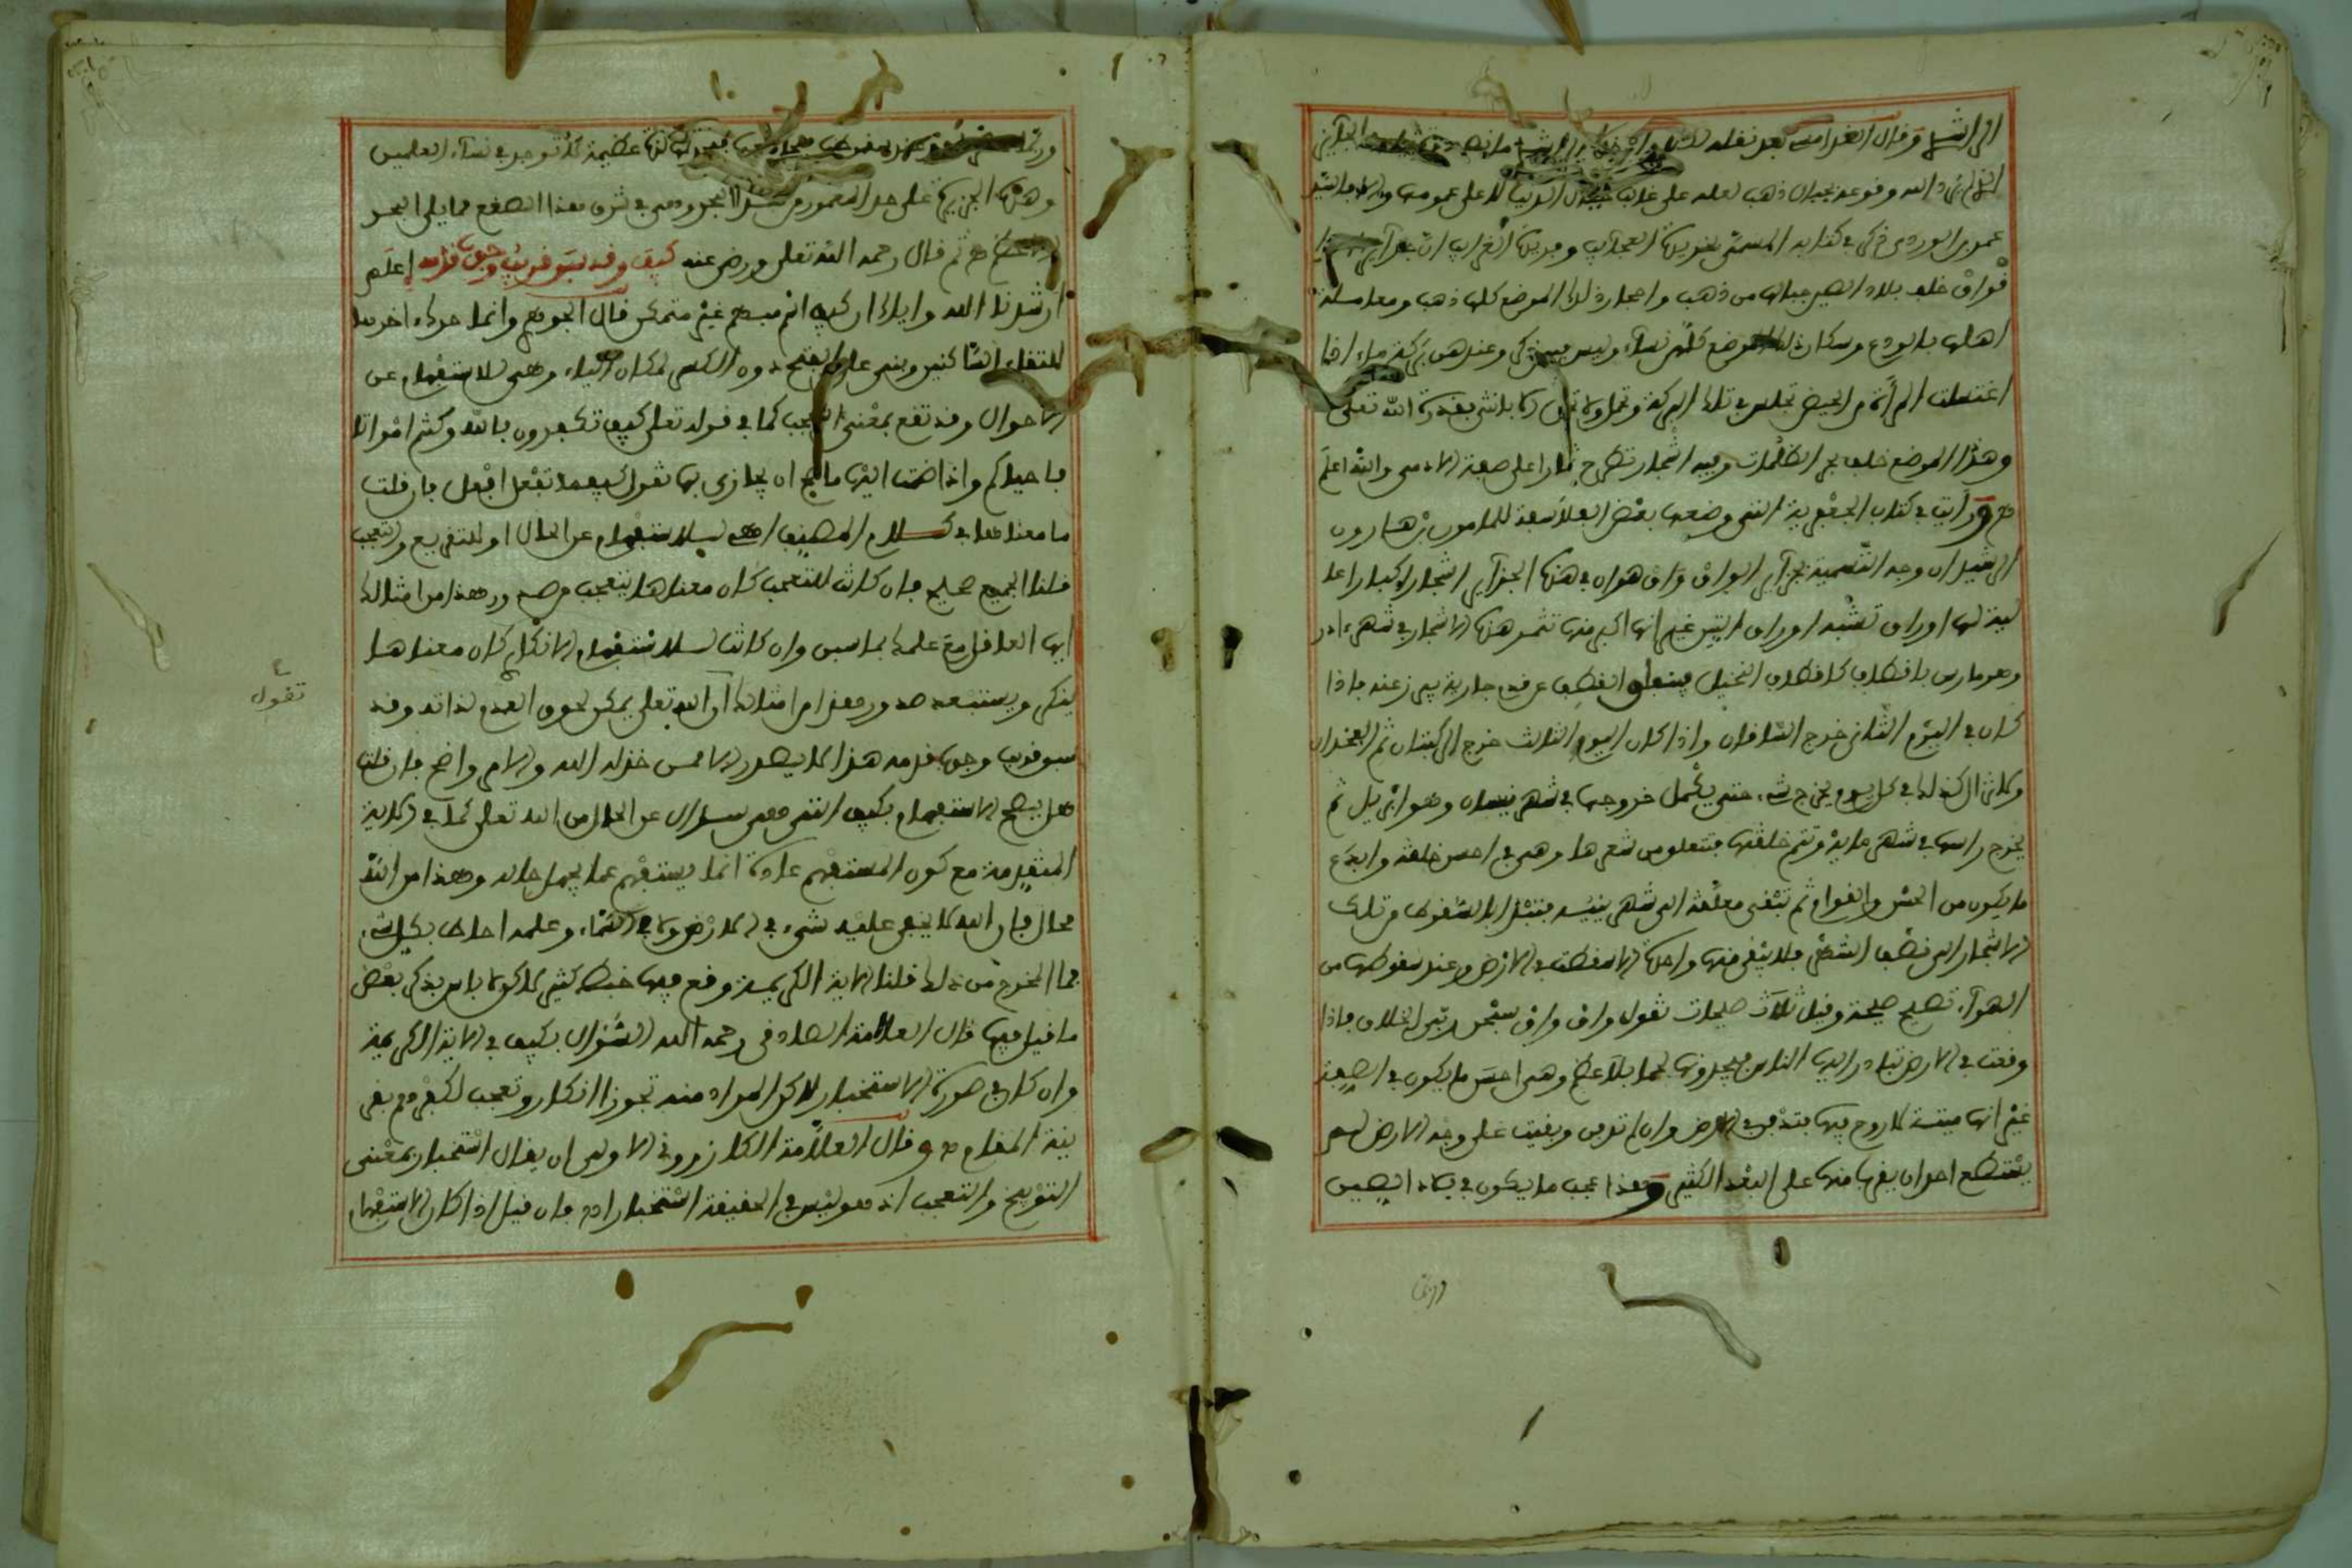 الى الشيخ وقال الغدامسي بعد نقله
الذي لم يرد الله وقوعه بجبال ذهب لعله على غالب جبال الدنيا لا على عمومها
عمر بن الوردي ذكر في كتابه المسمى بخريدة العجآيب وفريدة الغرايب ان
قواق خلف بلاد الصين جبالها من ذهب واحجار ذلك الموضع كلها ذهب ومعاملة
اهلها بالودع وسكان ذلك الموضع كلهم نسآء وليس بينهم ذكر وعندهن بركة ماء اذا
اغتسلت المرأة من الحيض تجلس في تلك البركة وتحمل ولا تلد الا بانثى بقدرة الله تعلى
وهذا الموضع خلف بحر الظلمات وفيه اشجار تطرح ثمارا على صفة الادمي والله اعلم
ورأيت في كتاب الجغرفية التي وضعها بعض الفلاسفة للمامون بن هارون
الرشيد ان وجه التسمية بجزآير الواق واق هو ان في هذه الجزآير اشجارا كبارا عا
لية لها اوراق تشبه اوراق التين غير انها اكبر منها تثمر هذه الاشجار في شهر اذر
وهو مارس باقطاف كاقطاف النخيل فينفلق القطف عن قدم جارية يبرز عنه فاذا
كان في اليوم الثاني خرج الساقان واذا كان اليوم الثالث خرج الركبتان ثم الفخذان
ولا يزال كذلك في كل يوم يخرج شيء حتى يكمل خروجها في شهر نيسان وهو ابريل ثم
يخرج راسها في شهر مايه وتتم خلقتها فتتعلق من شعرها وهي في احسن خلقة وابدع
ما يكون من الحسن والقوام ثم تبقى معلقة الى شهر ينيه فتبتدا بالسقوط من تلك
الاشجار الى نصف الشهر فلا يبقى منها واحدة الا سقطت في الارض وعند سقوطها من
الهوآء تصيح صيحة وقيل ثلاث صيحات تقول واق واق سبحن ربي الخلاق فاذا
وقعت في الارض تبادر اليها الناس فيجدونها لحما بلا عظم وهي احسن ما يكون في الصفة
غير انها ميتة لا روح فيها فتدفن في الارض وان لم تدفن وبقيت على وجه الارض لم
يستطع احد ان يقربها من على البعد الكثير وهذا عجب ما يكون في بلاد الصين
عظيمة لا توجد في نسآء العلمين
وهذه الجزيرة على حد المعمور من هذا البحر وهي في شرق هذا الصقع مما يلي البحر
ثم قال رحمه الله تعلى ورضي عنه كيف وقد سبق قريب وجوب قدمه إعلم
ارشدنا الله واياك ان كيف اسم مبهم غير متمكن قال الجوهري وانما حرك اخره
لالتقاء الساكنين وبني على الفتح دون الكسر لمكان الياء وهي للاستفهام عن
الاحوال وقد تقع بمعنى التعجب كما في قوله تعلى كيف تكفرون بالله وكنتم امواتا
فاحياكم واذا ضمت اليها ما صح ان يجازى بها تقول كيفما تفعل افعل فان قلت
ما معناها في كلام المصنف اهي للاستفهام عن الحال او للتقريع والتعجب
قلنا الجميع صحيح فان كانت للتعجب كان معناها يتعجب من صدور هذا من امثالك
ايها العاقل مع علمك بما سبق وان كانت للاستفهام الانكاري كان معناها
ينكر ويستبعد صدور هذا من امثالك ان الله تعلى يمكن لحوق العدم لذاته وقد
سبق قريب وجوب قدمه هذا لا يصدر الا ممن خذله الله والامر واضح فان قلت
هل يصح الاستفهام بكيف التي هي سؤال عن الحال من الله تعلى كما في الاية
المتقدمة مع كون المستفهم عادة انما يستفهم عما يجهل حاله وهذا من الله
محال فان الله لا يخفى عليه شيء في الارض ولا في السماء وعلمه احاط بكل شيء
فما المخرج من ذلك قلنا الاية الكريمة وقع فيها خبط كثير لاكن لا باس بذكر بعض
ما قيل فيها قال العلامة الصادقي رحمه الله السؤال بكيف في الاية الكريمة
وان كان في صورة الاستخبار لاكن المراد منه تجوزا انكار وتعجب لكفرهم بقر
ينة المقام وقال العلامة الكازروني الاولى ان يقال استخبار بمعنى
التوبيخ والتعجب اذ هو ليس في الحقيقة استخبارا فان قيل اذا كان الاستفهام
تقول